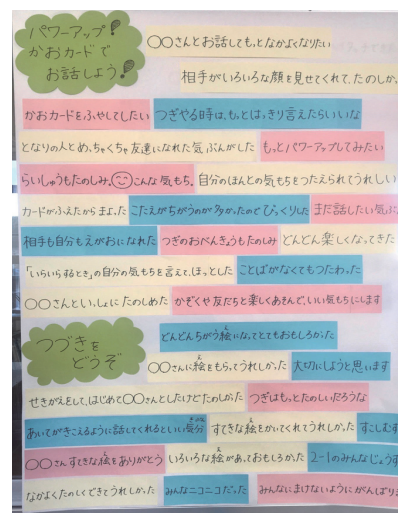 パワーアップ!
かおカードで
お話しよう!
〇〇さんとお話して、もっとなかよくなりたい
相手がいろいろな顔を見せてくれて、たのしか、
かおカードをふやしてしたい つぎやる時は、もっとは、きり言えたらいいな
となりの人とめ、ちゃくちゃ友達になれた気ぶんがした もっとパワーアップしてみたい
らいしゅうもたのしみ。こんな気もち。 自分のほんとの気もちをつたえられてうれしい
カードがふえたからまよった こたえがちがうのが多かったのでびっくりした まだ話したい気ぶ
相手も自分もえがおになれた つぎのおべんきょうもたのしみ どんどん楽しくなってきた
「いらいらするとき」の自分の気もちを言えて、ほっとした ことばがなくてもつたわった
〇〇さんといっしょにたのしめた かぞくや友だちと楽しくあそんで、いい気もちにします
つづきを
どうぞ
どんどんちがう絵になってとてもおもしろかった
〇〇さんに絵をもらってうれしかった 大切にしようと思います
せきがえをして、はじめて〇〇さんとしたけどたのしかった つぎはもっとたのしいだろうな
あいてがきこえるように話してくれるといい気分 すてきな絵をかいてくれてうれしかった すこしむず
〇〇さんすてきな絵をありがとう いろいろな絵があっておもしろかった 2-1のみんなじょうず
なかよくたのしくできてうれしかった みんなニコニコだった みんなにまけないようにがんばり